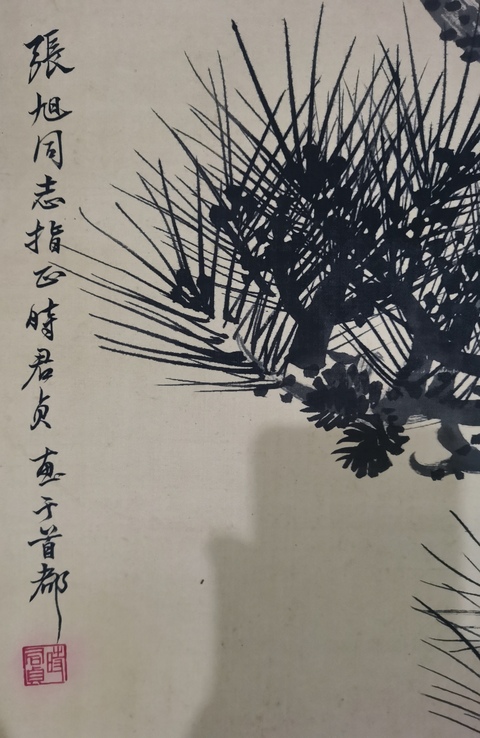 張旭同志指正時君贞画于首都
時君貞